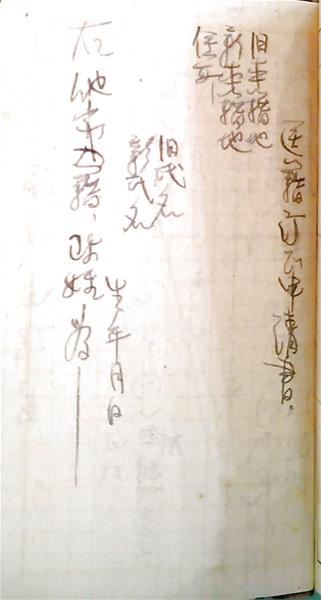 籍許可申請書
旧本籍地
新本籍地
住所
旧氏名
新氏名
生年月日
右他家入籍、改姓為